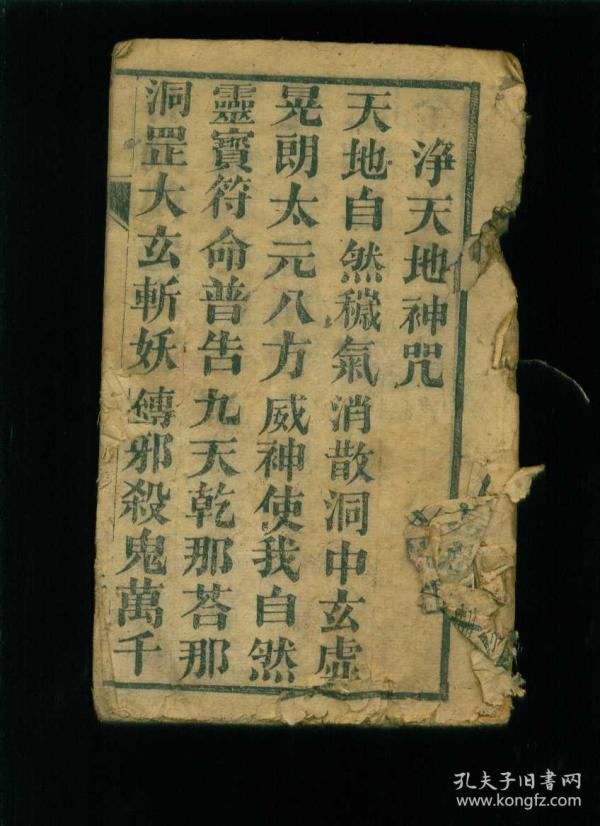 淨天地神咒
天地自然穢氣消散洞中玄虛
晃朗太元八方威神使我自然
靈寶符命普告九天乾那荅那
洞罡大玄斬妖縛邪殺鬼萬千
孔夫子旧书网
www.kongfz.com